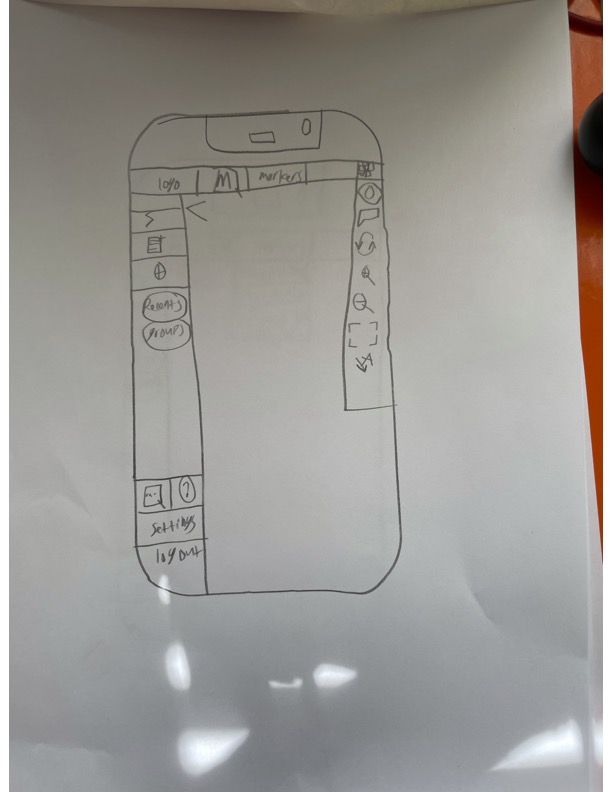 logo M markers
Recents
groups
?
settings
logout